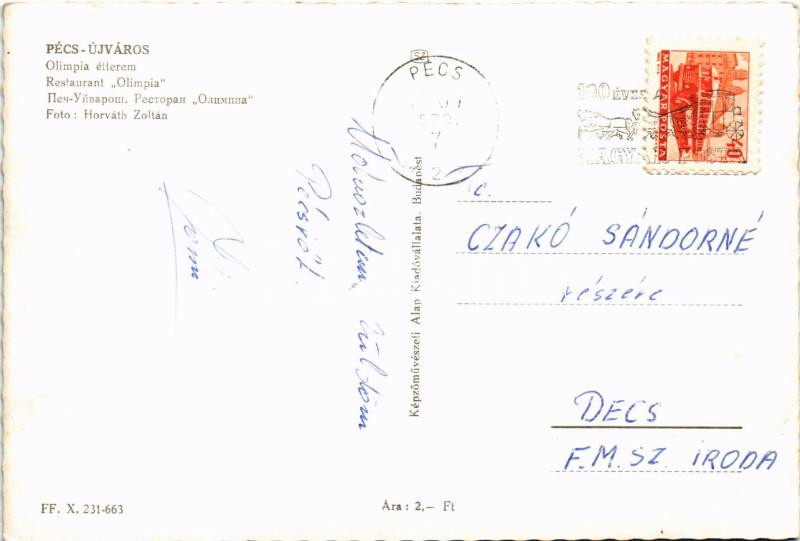 PÉCS-ÚJVÁROS
Olimpia étterem
Restaurant „Olimpia"
Печ-Уйварош. Ресторан „Олимпиа"
Foto : Horváth Zoltán
SZ
PÉCS
7
2
100 ÉVES A
MAGYAR
MAGYAR POSTA
40f
Pécsről.
Képzőművészeti Alap Kiadóvállalata, Budapest
CZAKÓ SÁNDORNÉ
részére
DECS
F.M.SZ. IRODA
FF. X. 231-663
Ára : 2,— Ft